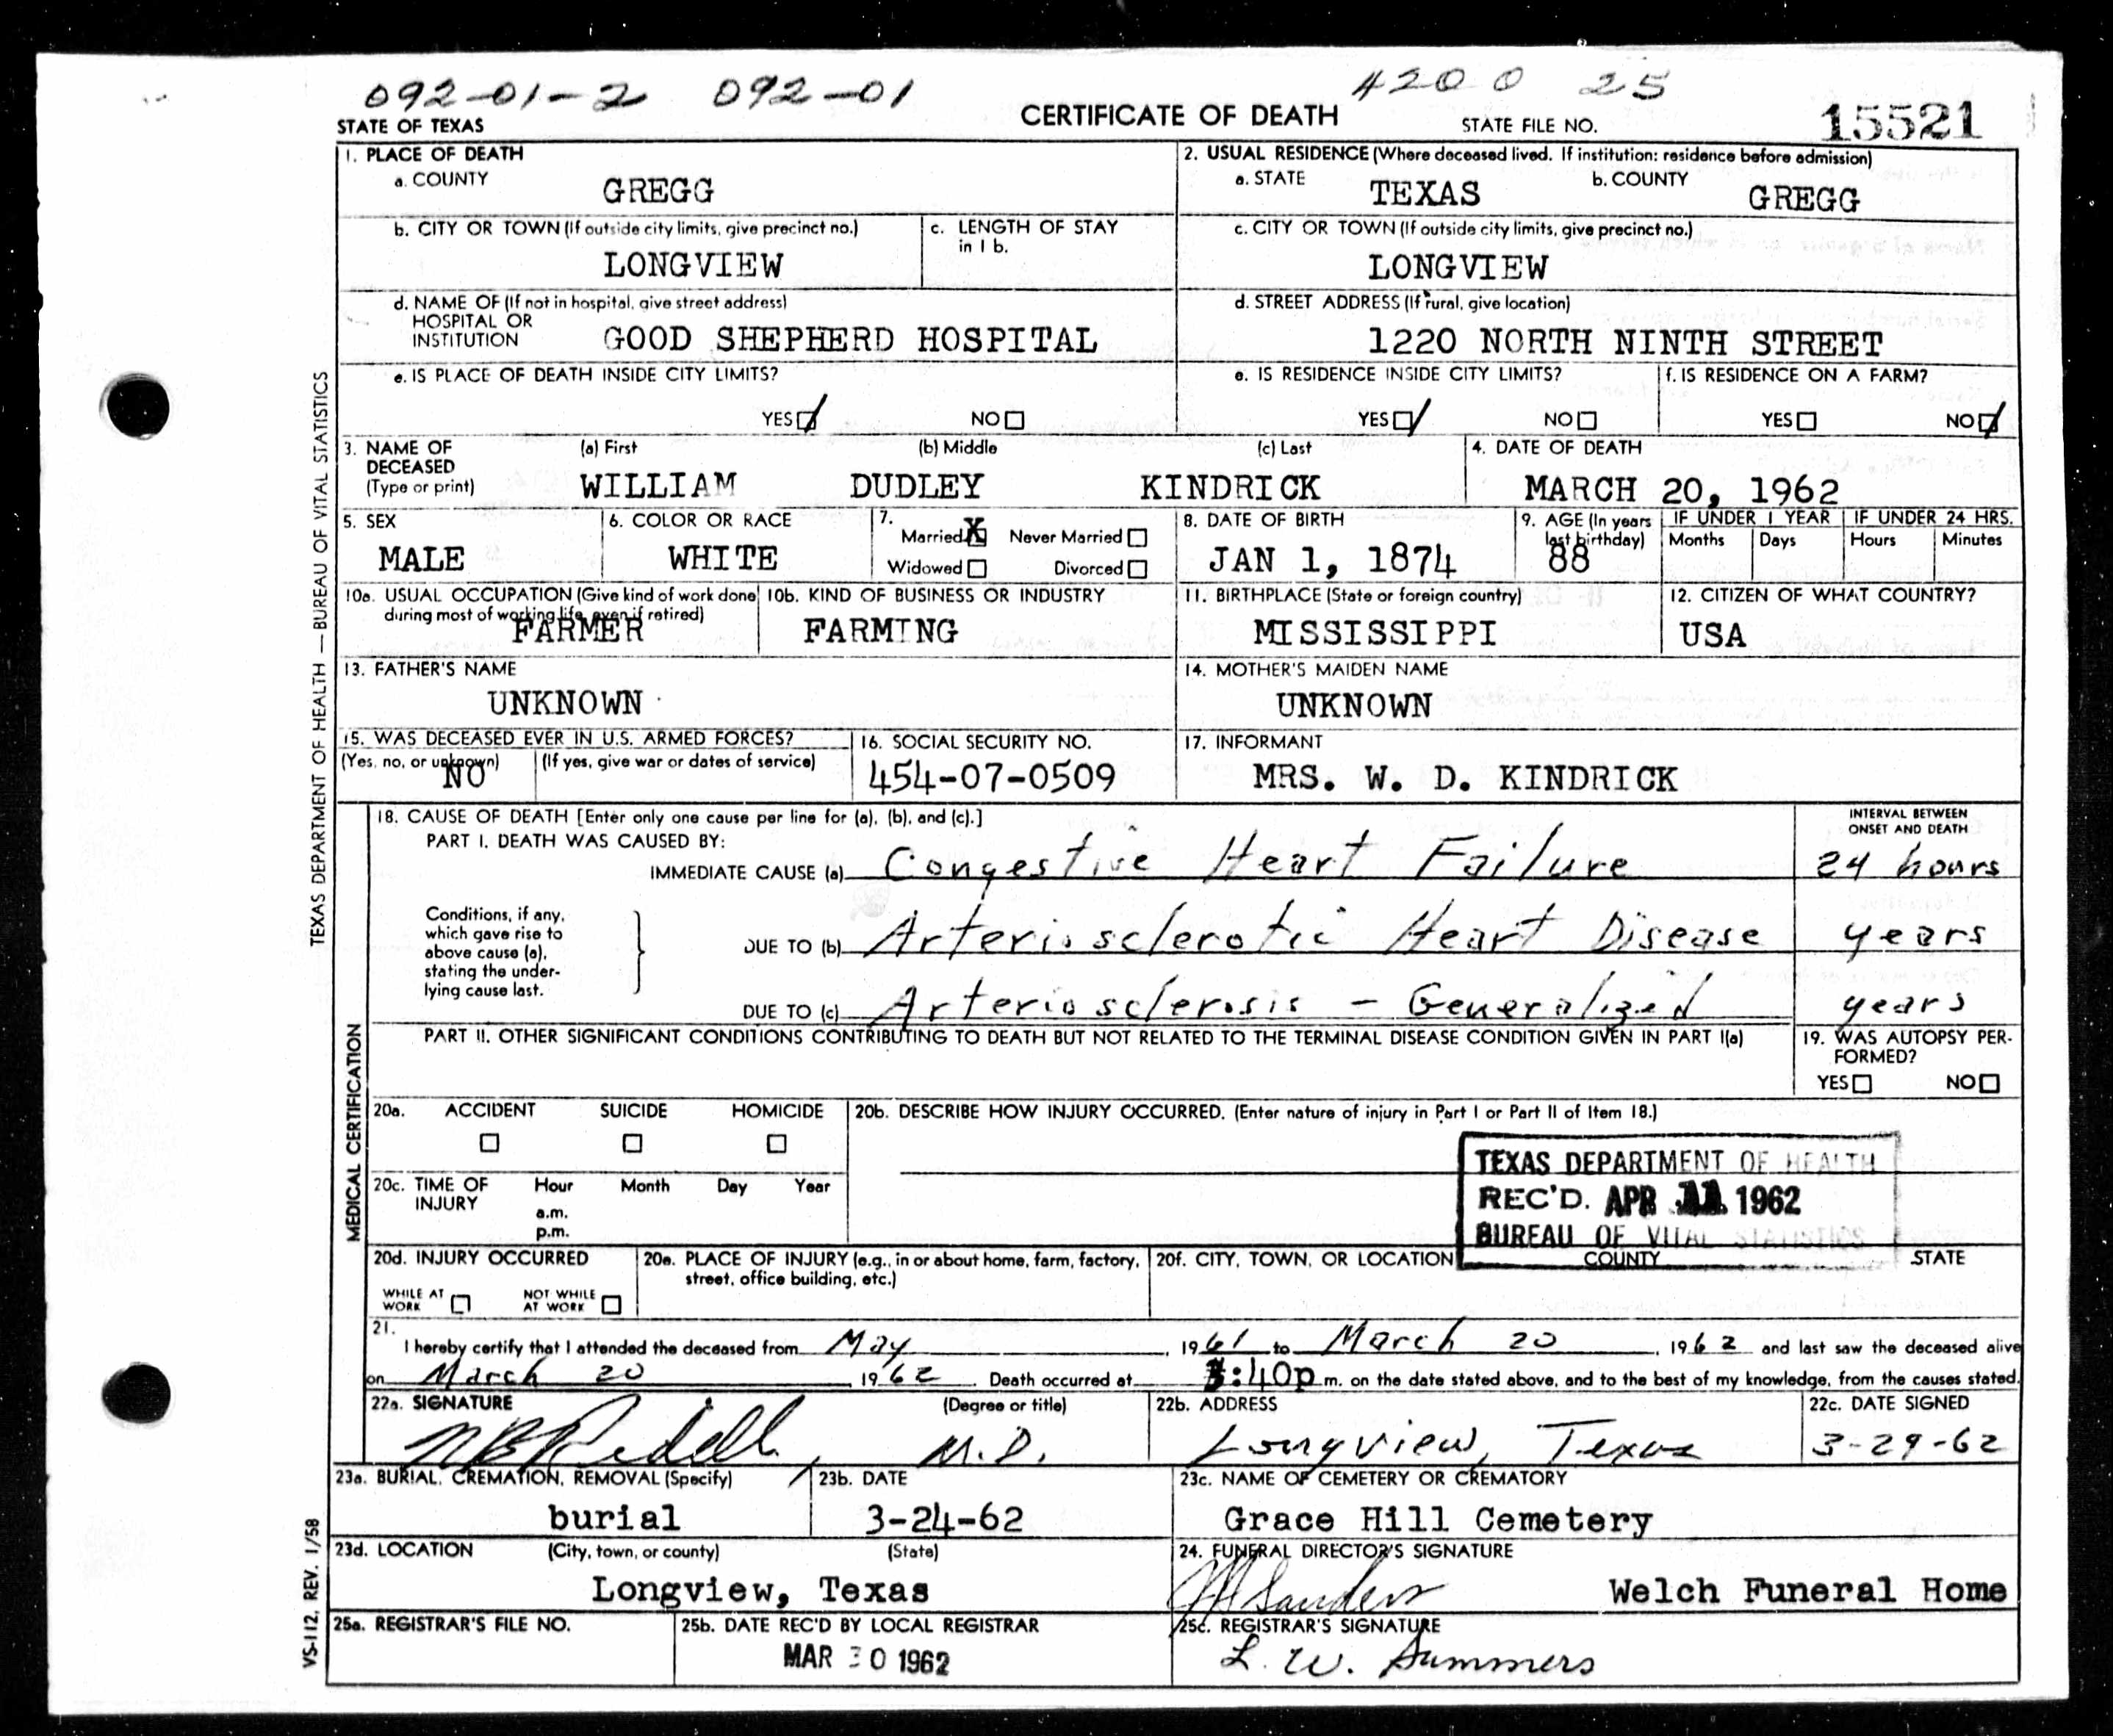 092-01-2 092-01 4200 25
STATE OF TEXAS CERTIFICATE OF DEATH STATE FILE NO. 15521
TEXAS DEPARTMENT OF HEALTH — BUREAU OF VITAL STATISTICS
1. PLACE OF DEATH
a. COUNTY GREGG
2. USUAL RESIDENCE (Where deceased lived. If institution: residence before admission)
a. STATE TEXAS b. COUNTY GREGG
b. CITY OR TOWN (If outside city limits, give precinct no.)
LONGVIEW
c. LENGTH OF STAY
in 1 b.
c. CITY OR TOWN (If outside city limits, give precinct no.)
LONGVIEW
d. NAME OF (If not in hospital, give street address)
HOSPITAL OR
INSTITUTION GOOD SHEPHERD HOSPITAL
d. STREET ADDRESS (If rural, give location)
1220 NORTH NINTH STREET
e. IS PLACE OF DEATH INSIDE CITY LIMITS?
YES NO
e. IS RESIDENCE INSIDE CITY LIMITS?
YES NO
f. IS RESIDENCE ON A FARM?
YES NO
3. NAME OF DECEASED (Type or print)
(a) First (b) Middle (c) Last
WILLIAM DUDLEY KINDRICK
4. DATE OF DEATH
MARCH 20, 1962
5. SEX
MALE
6. COLOR OR RACE
WHITE
7.
Married X Never Married
Widowed Divorced
8. DATE OF BIRTH
JAN 1, 1874
9. AGE (In years last birthday)
88
IF UNDER 1 YEAR IF UNDER 24 HRS.
Months Days Hours Minutes
10a. USUAL OCCUPATION (Give kind of work done
during most of working life, even if retired)
FARMER
10b. KIND OF BUSINESS OR INDUSTRY
FARMING
11. BIRTHPLACE (State or foreign country)
MISSISSIPPI
12. CITIZEN OF WHAT COUNTRY?
USA
13. FATHER'S NAME
UNKNOWN
14. MOTHER'S MAIDEN NAME
UNKNOWN
15. WAS DECEASED EVER IN U.S. ARMED FORCES?
(Yes, no, or unknown) (If yes, give war or dates of service)
NO
16. SOCIAL SECURITY NO.
454-07-0509
17. INFORMANT
MRS. W. D. KINDRICK
MEDICAL CERTIFICATION
18. CAUSE OF DEATH [Enter only one cause per line for (a), (b), and (c).]
INTERVAL BETWEEN
ONSET AND DEATH
PART I. DEATH WAS CAUSED BY:
IMMEDIATE CAUSE (a) Congestive Heart Failure 24 hours
Conditions, if any,
which gave rise to
above cause (a),
stating the under-
lying cause last.
DUE TO (b) Arteriosclerotic Heart Disease years
DUE TO (c) Arteriosclerosis - Generalized years
PART II. OTHER SIGNIFICANT CONDITIONS CONTRIBUTING TO DEATH BUT NOT RELATED TO THE TERMINAL DISEASE CONDITION GIVEN IN PART I(a)
19. WAS AUTOPSY PER-
FORMED?
YES NO
20a. ACCIDENT SUICIDE HOMICIDE
20b. DESCRIBE HOW INJURY OCCURRED. (Enter nature of injury in Part I or Part II of Item 18.)
20c. TIME OF INJURY Hour Month Day Year
a.m.
p.m.
TEXAS DEPARTMENT OF HEALTH
REC'D. APR 1962
BUREAU OF VITAL STATISTICS
20d. INJURY OCCURRED
WHILE AT WORK NOT WHILE AT WORK
20e. PLACE OF INJURY (e.g., in or about home, farm, factory,
street, office building, etc.)
20f. CITY, TOWN, OR LOCATION COUNTY STATE
21.
I hereby certify that I attended the deceased from May, 1961 to March 20, 1962 and last saw the deceased alive
on March 20, 1962. Death occurred at :40p m. on the date stated above, and to the best of my knowledge, from the causes stated.
22a. SIGNATURE (Degree or title)
M.D.
22b. ADDRESS
Longview, Texas
22c. DATE SIGNED
3-29-62
23a. BURIAL, CREMATION, REMOVAL (Specify)
burial
23b. DATE
3-24-62
23c. NAME OF CEMETERY OR CREMATORY
Grace Hill Cemetery
23d. LOCATION (City, town, or county) (State)
Longview, Texas
24. FUNERAL DIRECTOR'S SIGNATURE
Sanders Welch Funeral Home
25a. REGISTRAR'S FILE NO.
25b. DATE REC'D BY LOCAL REGISTRAR
MAR 30 1962
25c. REGISTRAR'S SIGNATURE
L. W. Summers
VS-112, REV. 1/58